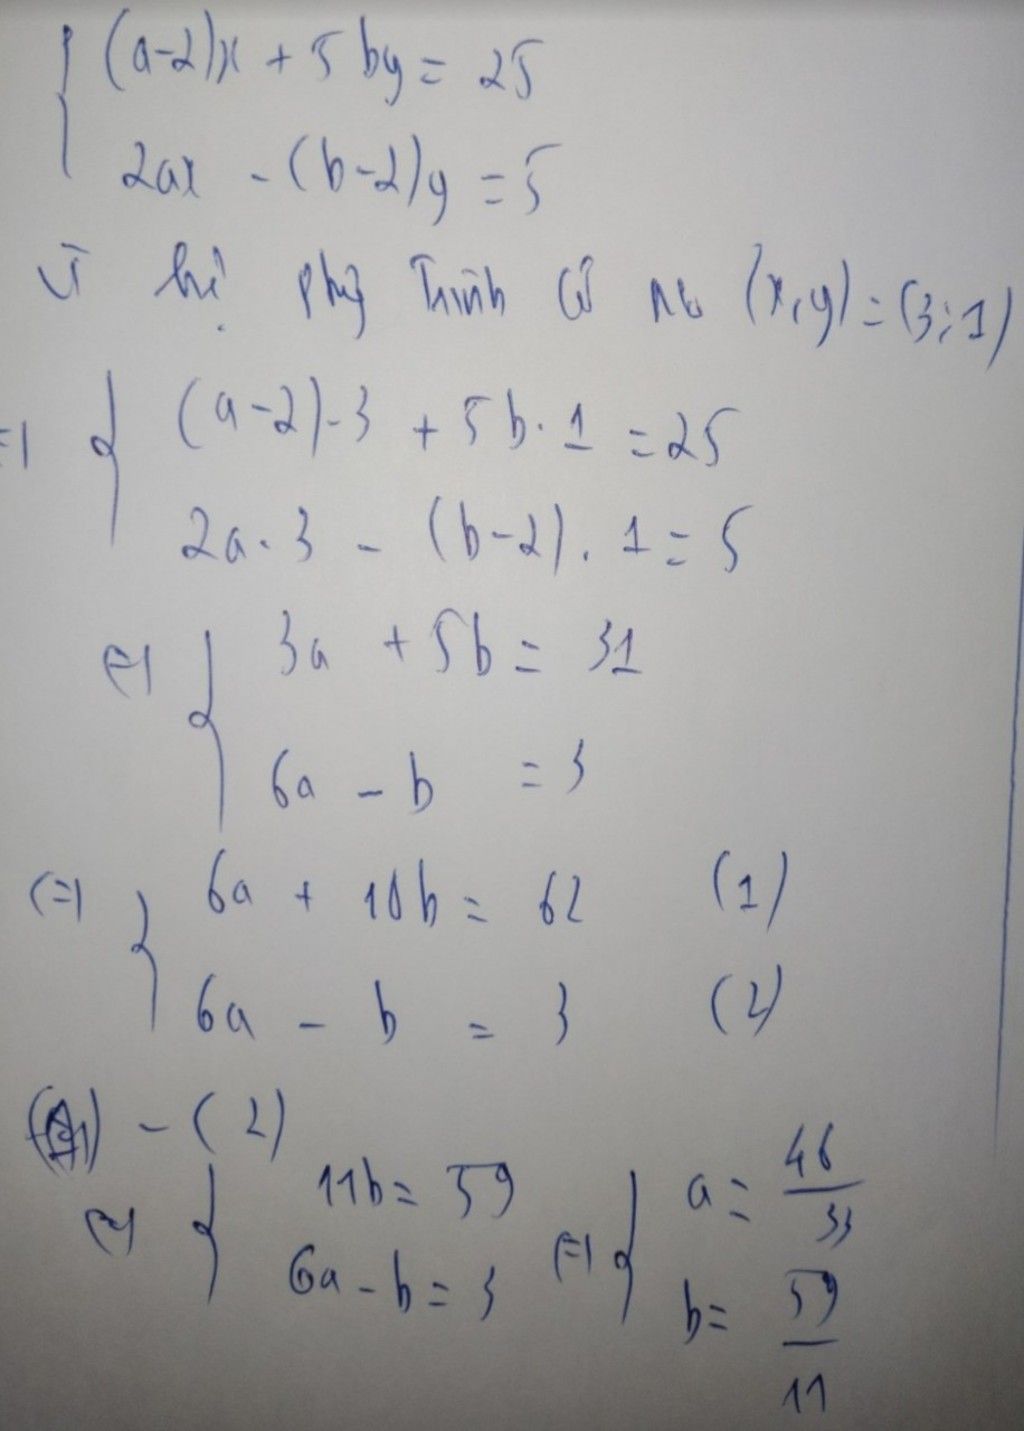 (a-2)x + 5by = 25
2ax - (b-2)y = 5
Vì hệ phg trình có no (x,y) = (3;1)
=) (a-2).3 + 5b.1 = 25
2a.3 - (b-2).1 = 5
(=) 3a + 5b = 31
6a - b = 3
(=) 6a + 10b = 62 (1)
6a - b = 3 (2)
(1) - (2)
(=) 11b = 59
6a - b = 3
(=) a = 46/33
b = 59/11